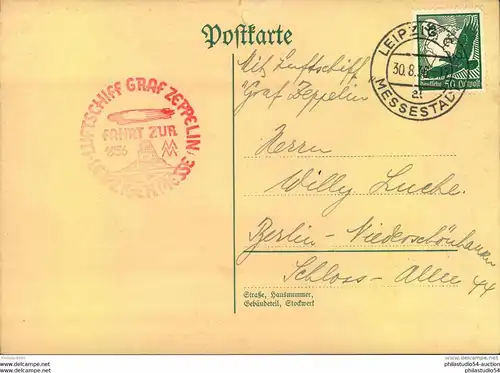 Postkarte
LEIPZIG
30.8.36
MESSESTADT
50
Mit Luftschiff
"Graf Zeppelin"
LUFTSCHIFF GRAF ZEPPELIN
FAHRT ZUR
1936
LEIPZIGER MESSE
Herrn
Willy Luche.
Berlin - Niederschönhausen
Schloss - Allee 44
Straße, Hausnummer,
Gebäudeteil, Stockwerk
philastudio54-auction
philastudio54.com